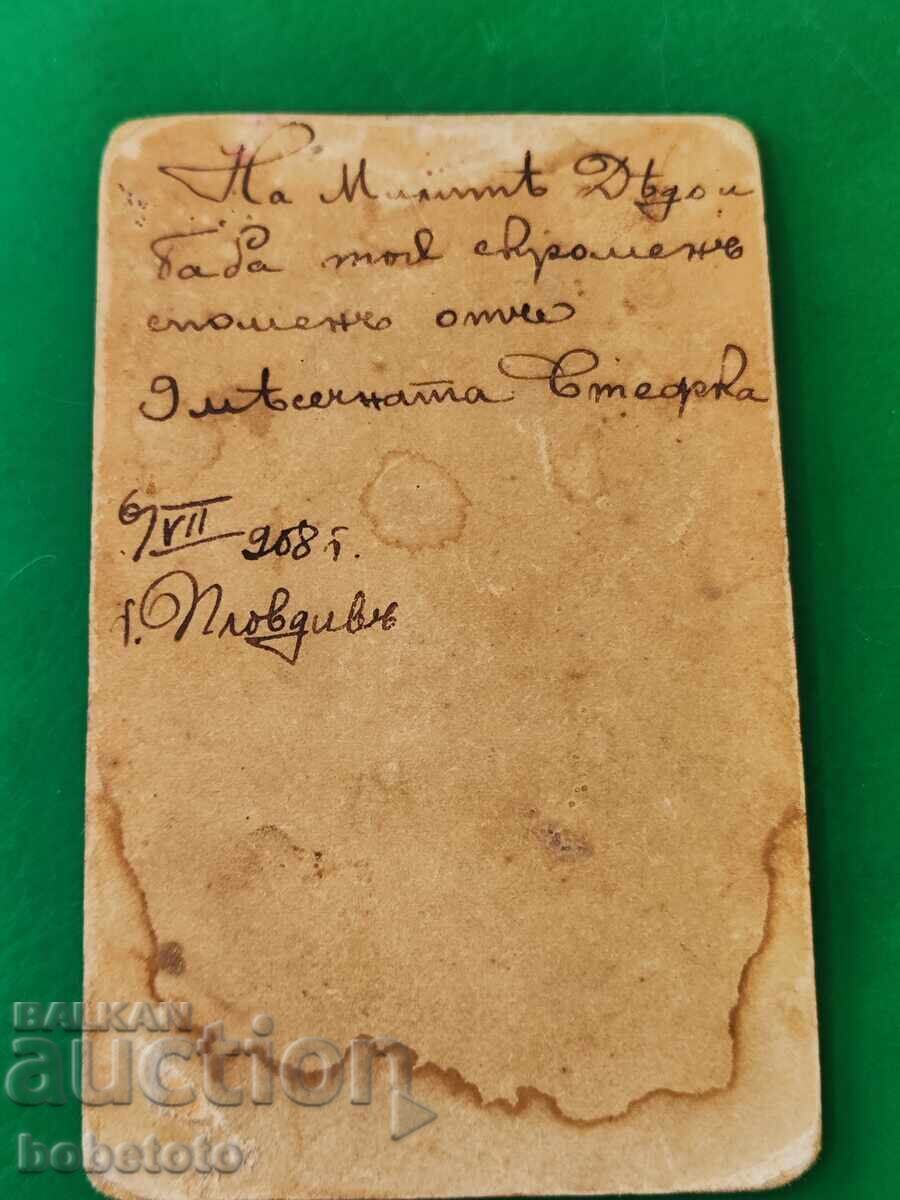 На Милитѣ Дѣдо и
баба тоя скроменъ
споменъ отъ
9 мѣсечната Стефка
6/VII 908 г.
г. Пловдивъ
BALKAN
auction
bobetoto